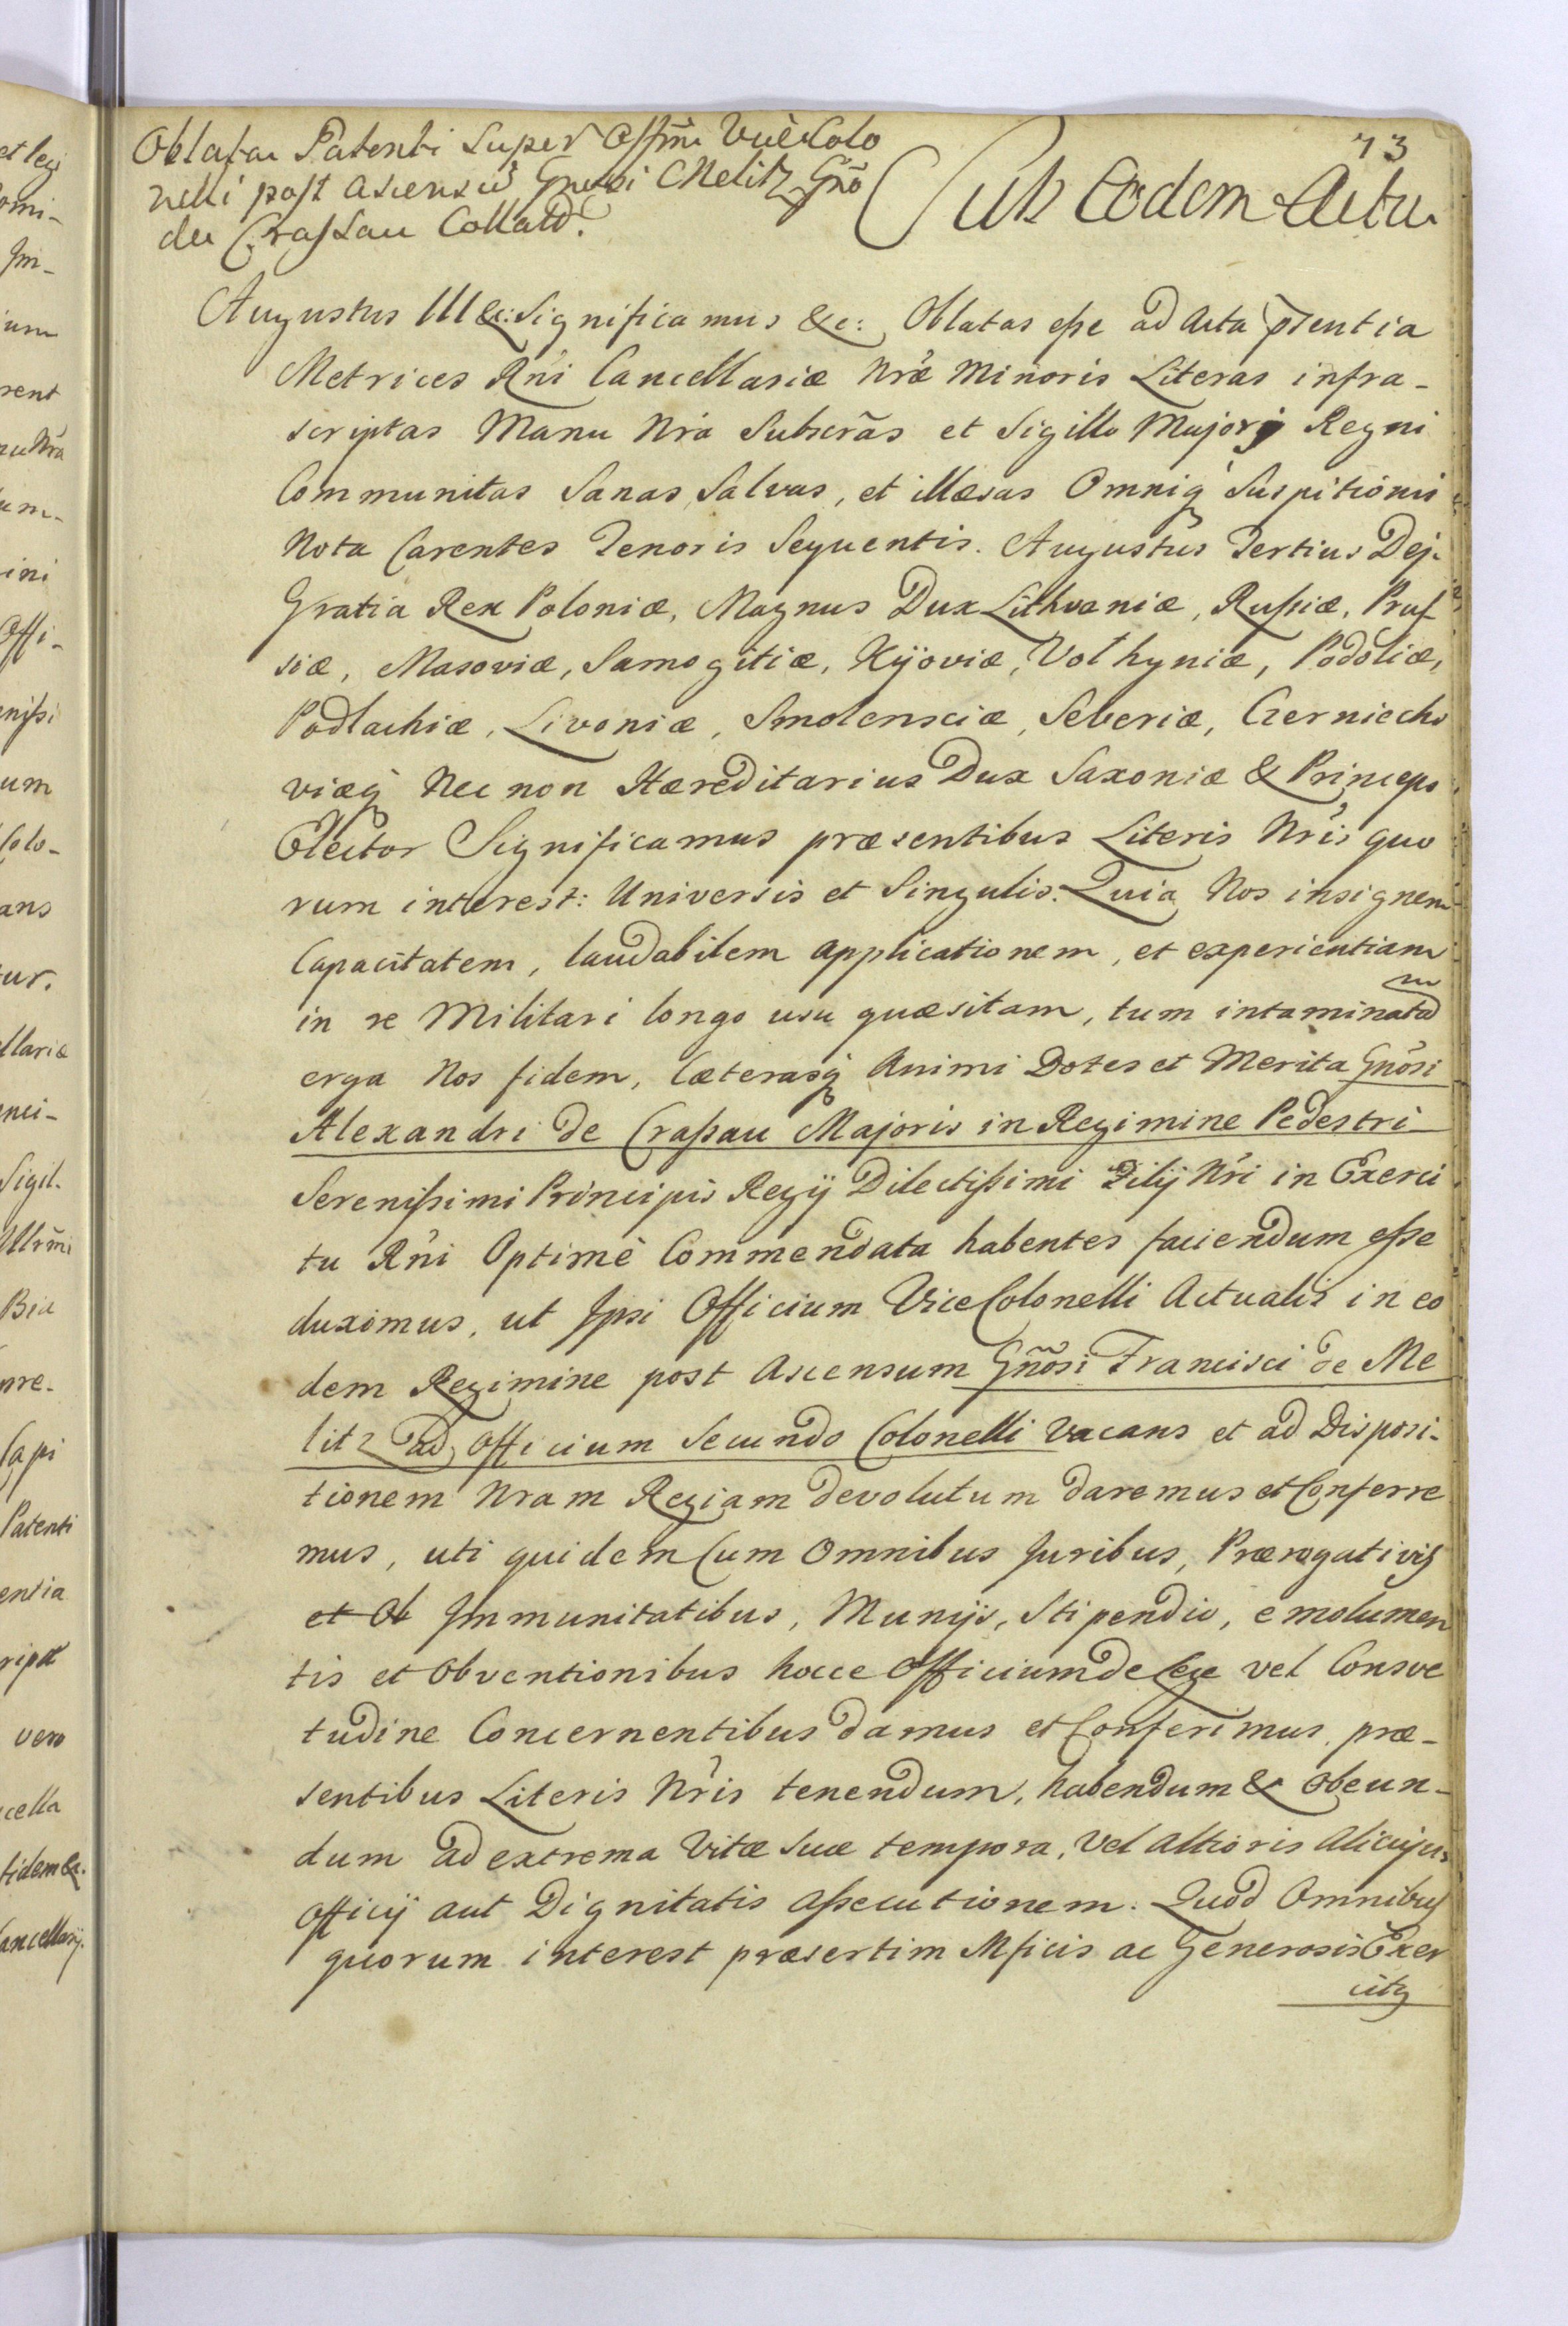 73
Oblata Patenti Super Offm ViceColo
nelli post Ascensū Gnosi Melitz Gno
de Crassau Collato.
Sub Eodem Actu
Augustus III &c: Significamus &c: Oblatas esse ad Acta pſentia
Metrices Rni Cancellariæ Nræ Minoris Literas infra-
scriptas Manu Nra Subscrãs et Sigillo Majori Regni
Communitas Sanas, Salvas, et illæsas Omniq́ Suspitionis
Nota Carentes Tenoris Sequentis. Augustus Tertius Dei
Gratia Rex Poloniæ, Magnus Dux Lithvaniæ, Russiæ, Prus
siæ, Masoviæ, Samogitiæ, Kijoviæ, Volhyniæ, Podoliæ,
Podlachiæ, Livoniæ, Smolensciæ, Severiæ, Czerniecho
viæq́ Nec non Hæreditarius Dux Saxoniæ & Princeps
Elector Significamus præsentibus Literis Nris quo
rum interest: Universis et Singulis. Quia Nos insignem
Capacitatem, laudabilem applicationem, et experientiam
in re Militari longo usu quæsitam, tum intaminatam
erga Nos fidem, Cæterasq́ Animi Dotes et Merita Gnosi
Alexandri de Crassau Majoris in Regimine Pedestri
Serenissimi Principis Regij Dilectissimi Filij Nri in Exerci
tu Rni Optimè Commendata habentes faciendum esse
duximus, ut Ipsi Officium ViceColonelli Actualis in eo
dem Regimine post Ascensum Gnõsi Francisci de Me
litz ad Officium Secundo Colonelli vacans et ad Disposi-
tionem Nram Regiam devolutum daremus et Conferre
mus, uti quidem Cum Omnibus Juribus, Prærogativis
et Ob Immunitatibus, Munijs, Stipendio, emolumen
tis et Obventionibus hocce Officium de lege vel Consve
tudine Concernentibus damus et Conferimus præ-
sentibus Literis Nris tenendum, habendum & obeun-
dum ad extrema Vitæ Suæ tempora, Vel altioris Alicujus
Officij aut Dignitatis assecutionem. Quod Omnibus
quorum interest præsertim Mficis ac Generosis Exer
citq